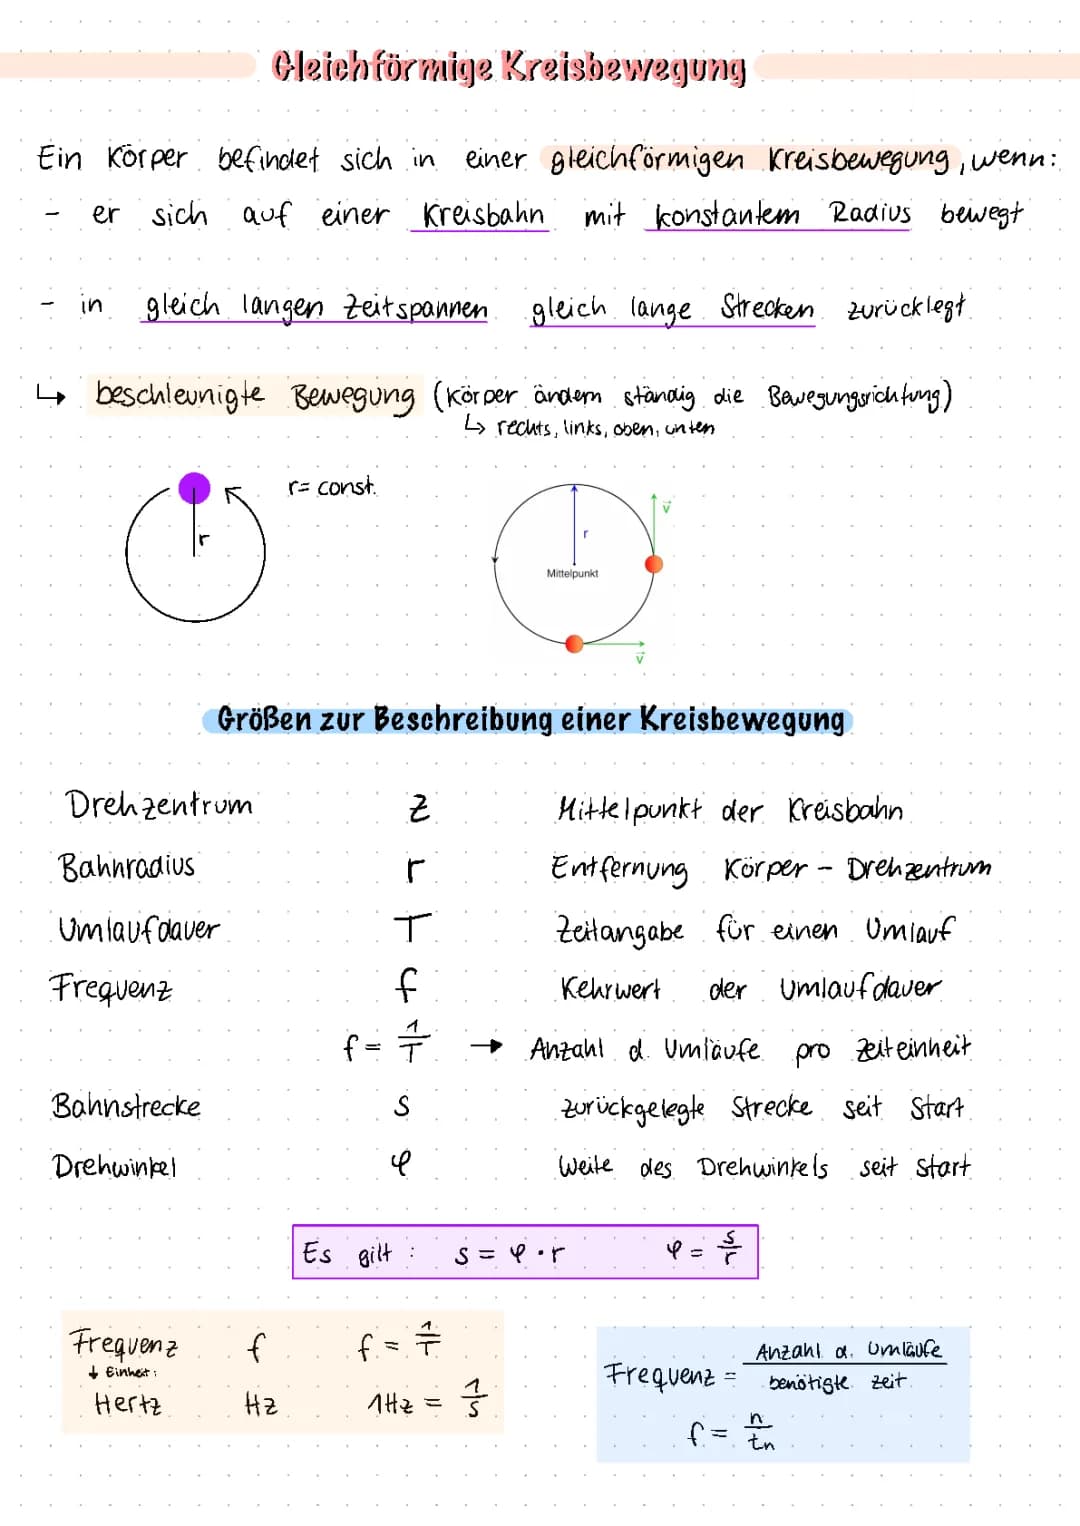 Gleichförmige Kreisbewegung
Ein Körper befindet sich in einer gleichförmigen Kreisbewegung, wenn:
- er sich auf einer Kreisbahn mit konstantem Radius bewegt
- in gleich langen Zeitspannen gleich lange Strecken zurücklegt
↳ beschleunigte Bewegung (Körper ändern ständig die Bewegungsrichtung)
↳ rechts, links, oben, unten
r= const.
r
r
v⃗
Mittelpunkt
v⃗
Größen zur Beschreibung einer Kreisbewegung
Drehzentrum Z Mittelpunkt der Kreisbahn
Bahnradius r Entfernung Körper - Drehzentrum
Umlaufdauer T Zeitangabe für einen Umlauf
Frequenz f Kehrwert der Umlaufdauer
f = 1/T → Anzahl d. Umläufe pro Zeiteinheit
Bahnstrecke s zurückgelegte Strecke seit Start
Drehwinkel φ Weite des Drehwinkels seit Start
Es gilt : s = φ · r φ = s/r
Frequenz f f = 1/T
↓ Einheit:
Hertz Hz 1Hz = 1/s
Frequenz = Anzahl d. Umläufe / benötigte Zeit
f = n/tn